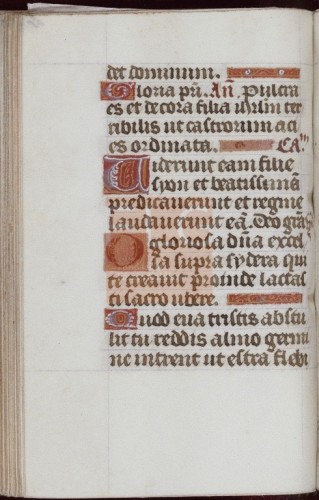 det dominum.
Gloria pri. An. Pulcra
es et decora filia iħrlm ter
ribilis ut castrorum aci
es ordinata. Ca'm
Viderunt eam filie
syon et beatissimā
predicaverunt et regine
laudaverunt eā. Deo grās
O gloriosa dn̄a excel
sa supra sydera qui
te creavit provide lactas
ti sacro ubere.
Quod eva tristis abstu
lit tu reddis almo germi
ne intrent ut estra flebi